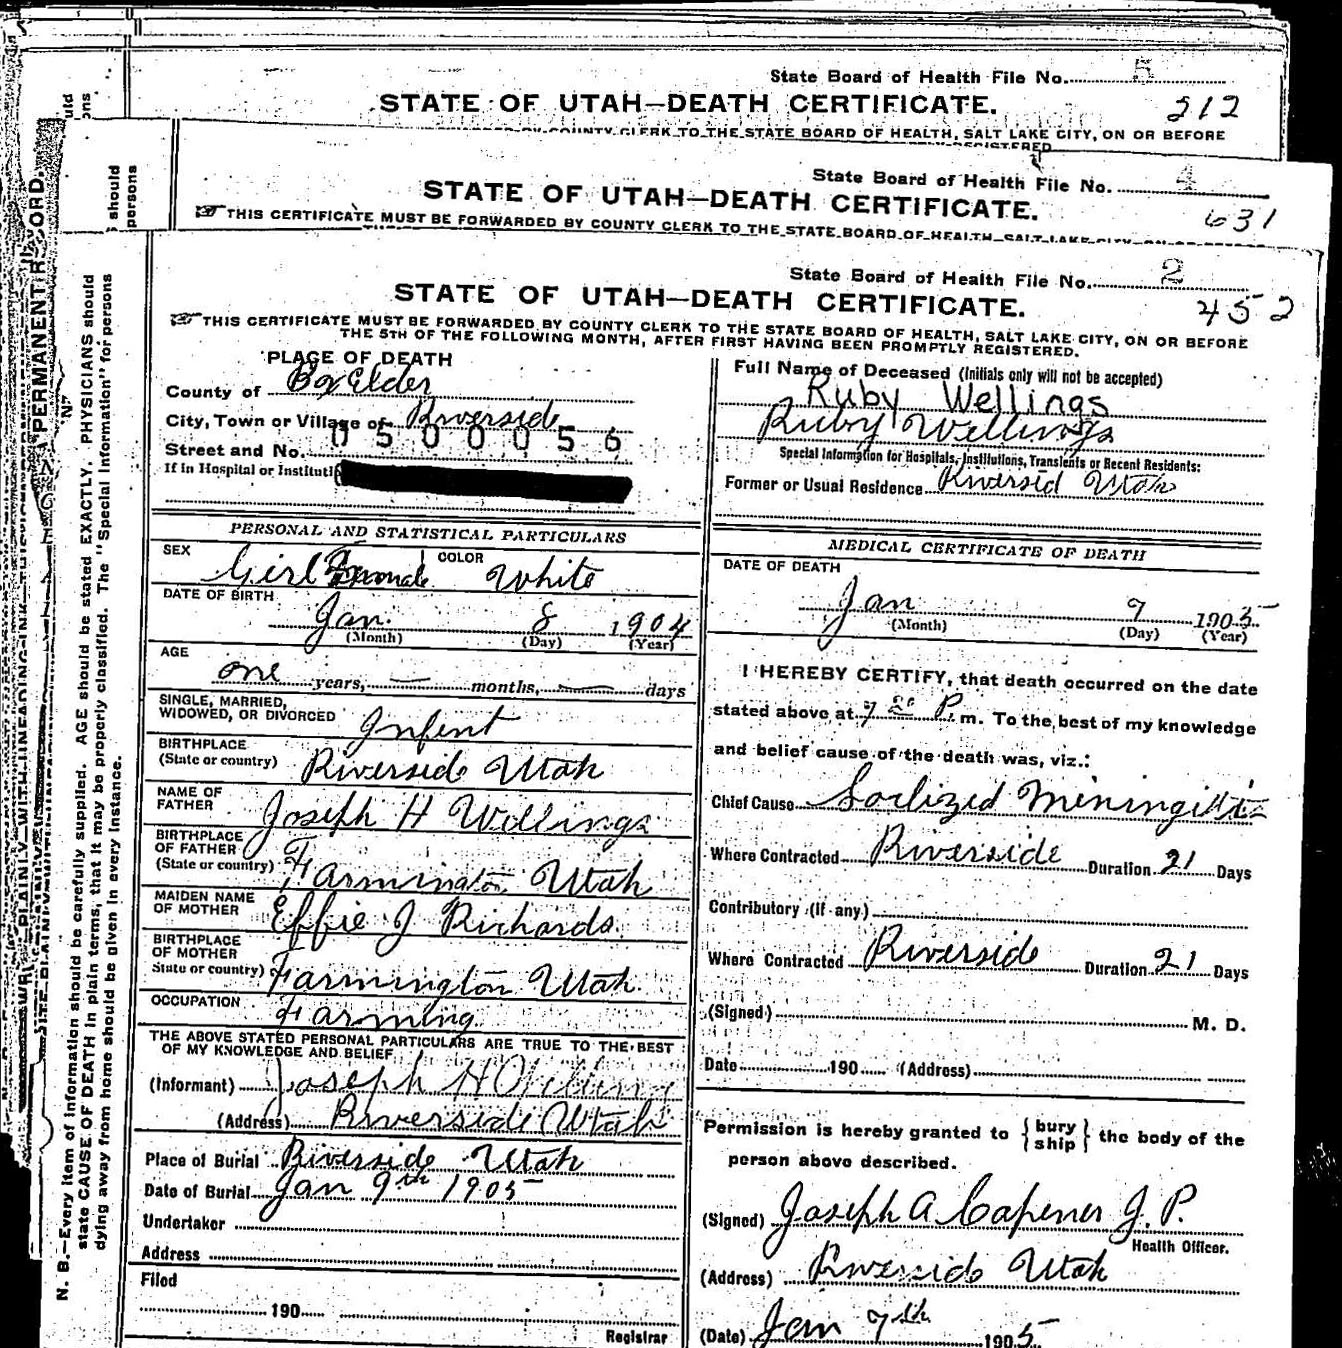 State Board of Health File No. 5
STATE OF UTAH—DEATH CERTIFICATE.
212
BY COUNTY CLERK TO THE STATE BOARD OF HEALTH, SALT LAKE CITY, ON OR BEFORE
REGISTERED
State Board of Health File No. 4
STATE OF UTAH—DEATH CERTIFICATE.
631
THIS CERTIFICATE MUST BE FORWARDED BY COUNTY CLERK TO THE STATE BOARD OF HEALTH, SALT LAKE CITY, ON OR BEFORE
should
persons
State Board of Health File No. 2
STATE OF UTAH—DEATH CERTIFICATE.
452
THIS CERTIFICATE MUST BE FORWARDED BY COUNTY CLERK TO THE STATE BOARD OF HEALTH, SALT LAKE CITY, ON OR BEFORE
THE 5TH OF THE FOLLOWING MONTH, AFTER FIRST HAVING BEEN PROMPTLY REGISTERED.
PLACE OF DEATH
County of Box Elder
City, Town or Village of Riverside
0500056
Street and No.
If in Hospital or Instituti
Full Name of Deceased (Initials only will not be accepted)
Ruby Wellings
Ruby Wellings
Special Information for Hospitals, Institutions, Transients or Recent Residents:
Former or Usual Residence Riversid Utah
PERSONAL AND STATISTICAL PARTICULARS
SEX Girl Female COLOR White
DATE OF BIRTH
Jan. 8 1904
(Month) (Day) (Year)
AGE
one years, — months, — days
SINGLE, MARRIED,
WIDOWED, OR DIVORCED Infent
BIRTHPLACE
(State or country) Riverside Utah
NAME OF
FATHER Joseph H Wellings
BIRTHPLACE
OF FATHER
(State or country) Farmington Utah
MAIDEN NAME
OF MOTHER Effie J Richards
BIRTHPLACE
OF MOTHER
State or country) Farmington Utah
OCCUPATION Farming
THE ABOVE STATED PERSONAL PARTICULARS ARE TRUE TO THE BEST
OF MY KNOWLEDGE AND BELIEF
(Informant) Joseph H Welling
(Address) Riverside Utah
Place of Burial Riverside Utah
Date of Burial Jan 9th 1905
Undertaker
Address
Filed
190
Registrar
MEDICAL CERTIFICATE OF DEATH
DATE OF DEATH
Jan 7 1905
(Month) (Day) (Year)
I HEREBY CERTIFY, that death occurred on the date
stated above at 7 20 P. m. To the best of my knowledge
and belief cause of the death was, viz.:
Chief Cause Soclized Meningitis
Where Contracted Riverside Duration 21 Days
Contributory (If any)
Where Contracted Riverside Duration 21 Days
(Signed) M. D.
Date 190 (Address)
Permission is hereby granted to { bury ship } the body of the
person above described.
(Signed) Joseph A Capener J. P.
Health Officer.
(Address) Riverside Utah
(Date) Jan 7th 1905
PERMANENT RECORD.
N. B.—Every item of information should be carefully supplied. AGE should be stated EXACTLY. PHYSICIANS should
state CAUSE OF DEATH in plain terms, that it may be properly classified. The "Special Information" for persons
dying away from home should be given in every instance.